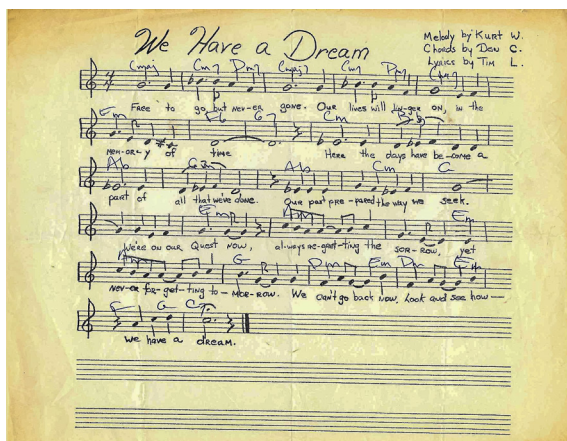 We Have a Dream
Melody by Kurt W.
Chords by Den C.
Lyrics by Tim L.
Cmaj7 Cm7 Dm7 Cmaj7 Cm7 Dm7
Free to go, but nev-er gone. Our lives will lin-ger on, in the
Em Cm
mem-or-y of time Here the days have be-come a
Ab Ab Cm G
part of all that we've done. Our past pre-pared the way we seek.
Em Em
We're on our Quest now, al-ways re-get-ting the sor-row, yet
Am G Dm Em Dm Em
Nev-er for-get-ting to-mor-row. We can't go back now, Look and see how—
F G
we have a dream.